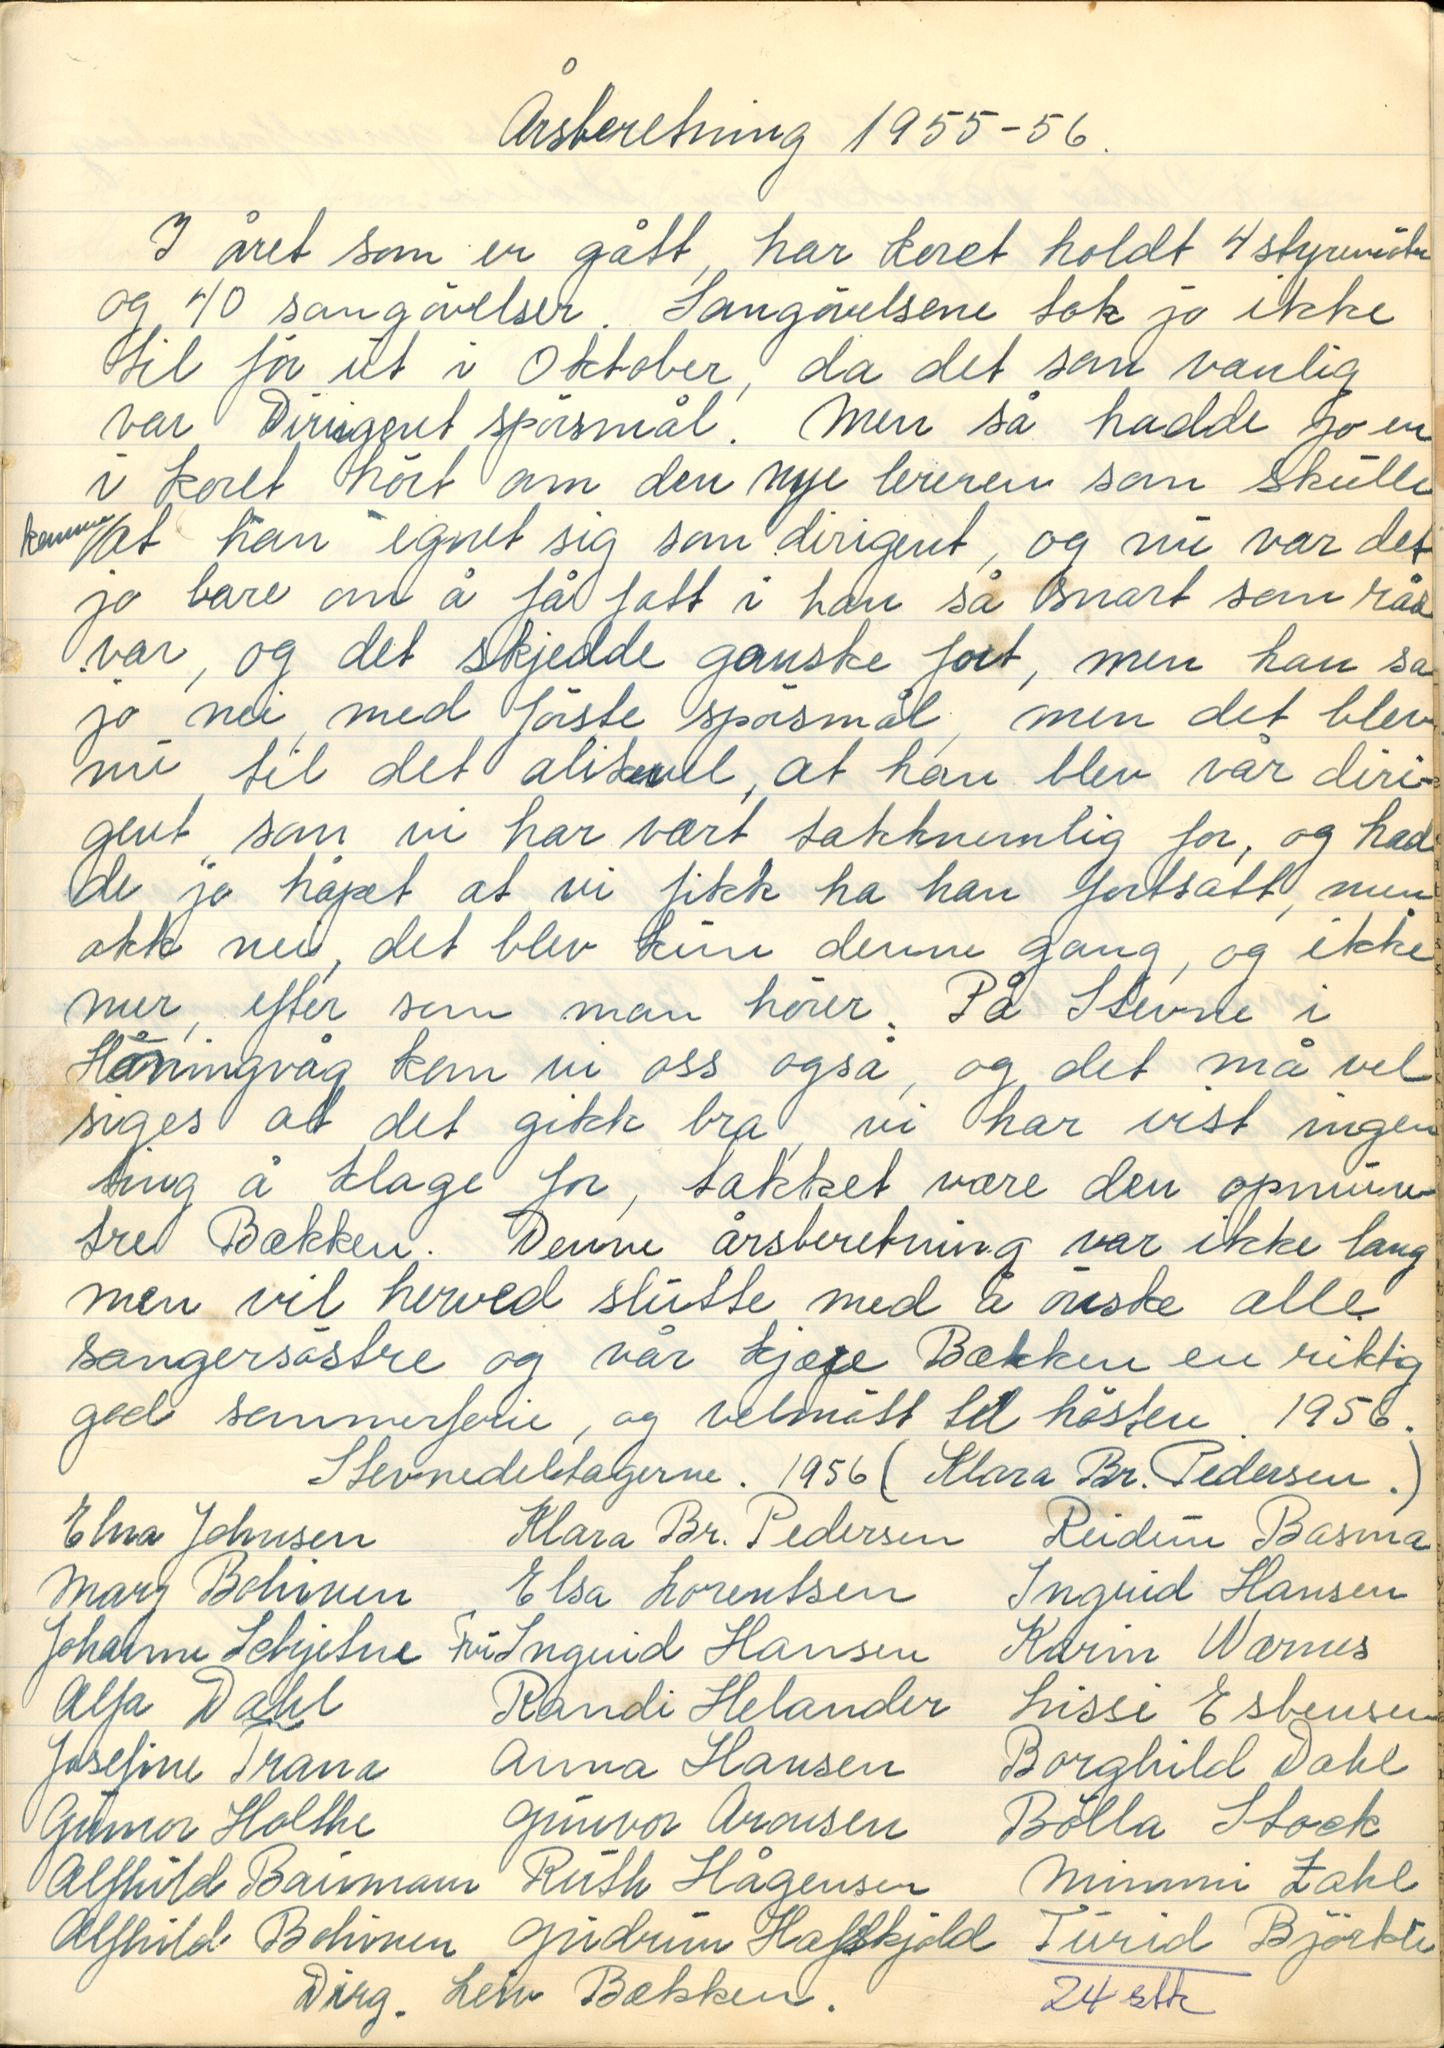 Årsberetning 1955-56.
I året som er gått, har koret holdt 4 styremöter
og 40 sangövelser. Sangövelsene tok jo ikke
til för ut i Oktober, da det som vanlig
var Dirigent spörsmål. Men så hadde jo en
i koret hört om den nye læreren som skulle
komme/At han egnet sig som dirigent, og nu var det
jo bare om å få fatt i han så snart som råd
var, og det skjedde ganske fort, men han sa
jo nei, med förste spörsmål, men det blev
nu til det alikevel, at han blev vår diri-
gent som vi har vært takknemlig for, og had
de jo håpet at vi fikk ha han fortsatt, men
akk nei, det blev kun denne gang, og ikke
mer, efter som man hörer. På Stevne i
Hånningvåg kom vi oss også, og det må vel
siges at det gikk bra, vi har vist ingen
ting å klage for, takket være den opmun-
tre Bækken. Denne årsberetning var ikke lang
men vil herved slutte med å önske alle
sangersöstre og vår kjære Bækken en riktig
god sommerferie, og velmött til hösten. 1956.
Stevnedeltagerne. 1956 (Klara Br. Pedersen.)
Elna Johnsen Klara Br. Pedersen Reidun Basma
Mary Bohinen Elsa Lorentsen Ingrid Hansen
Johanne Schjetne Fru Ingrid Hansen Karin Wærnes
Alfa Dahl Randi Helander Lissi Esbensen
Josefine Trana Anna Hansen Borghild Dahl
Gunvor Holthe Gunvor Aronsen Bölla Stock
Alfhild Baumann Ruth Hågensen Mimmi Zahl
Alfhild Bohinen Gudrun Hafskjold Turid Björkli
Dirg. Leiv Bækken. 24 stk